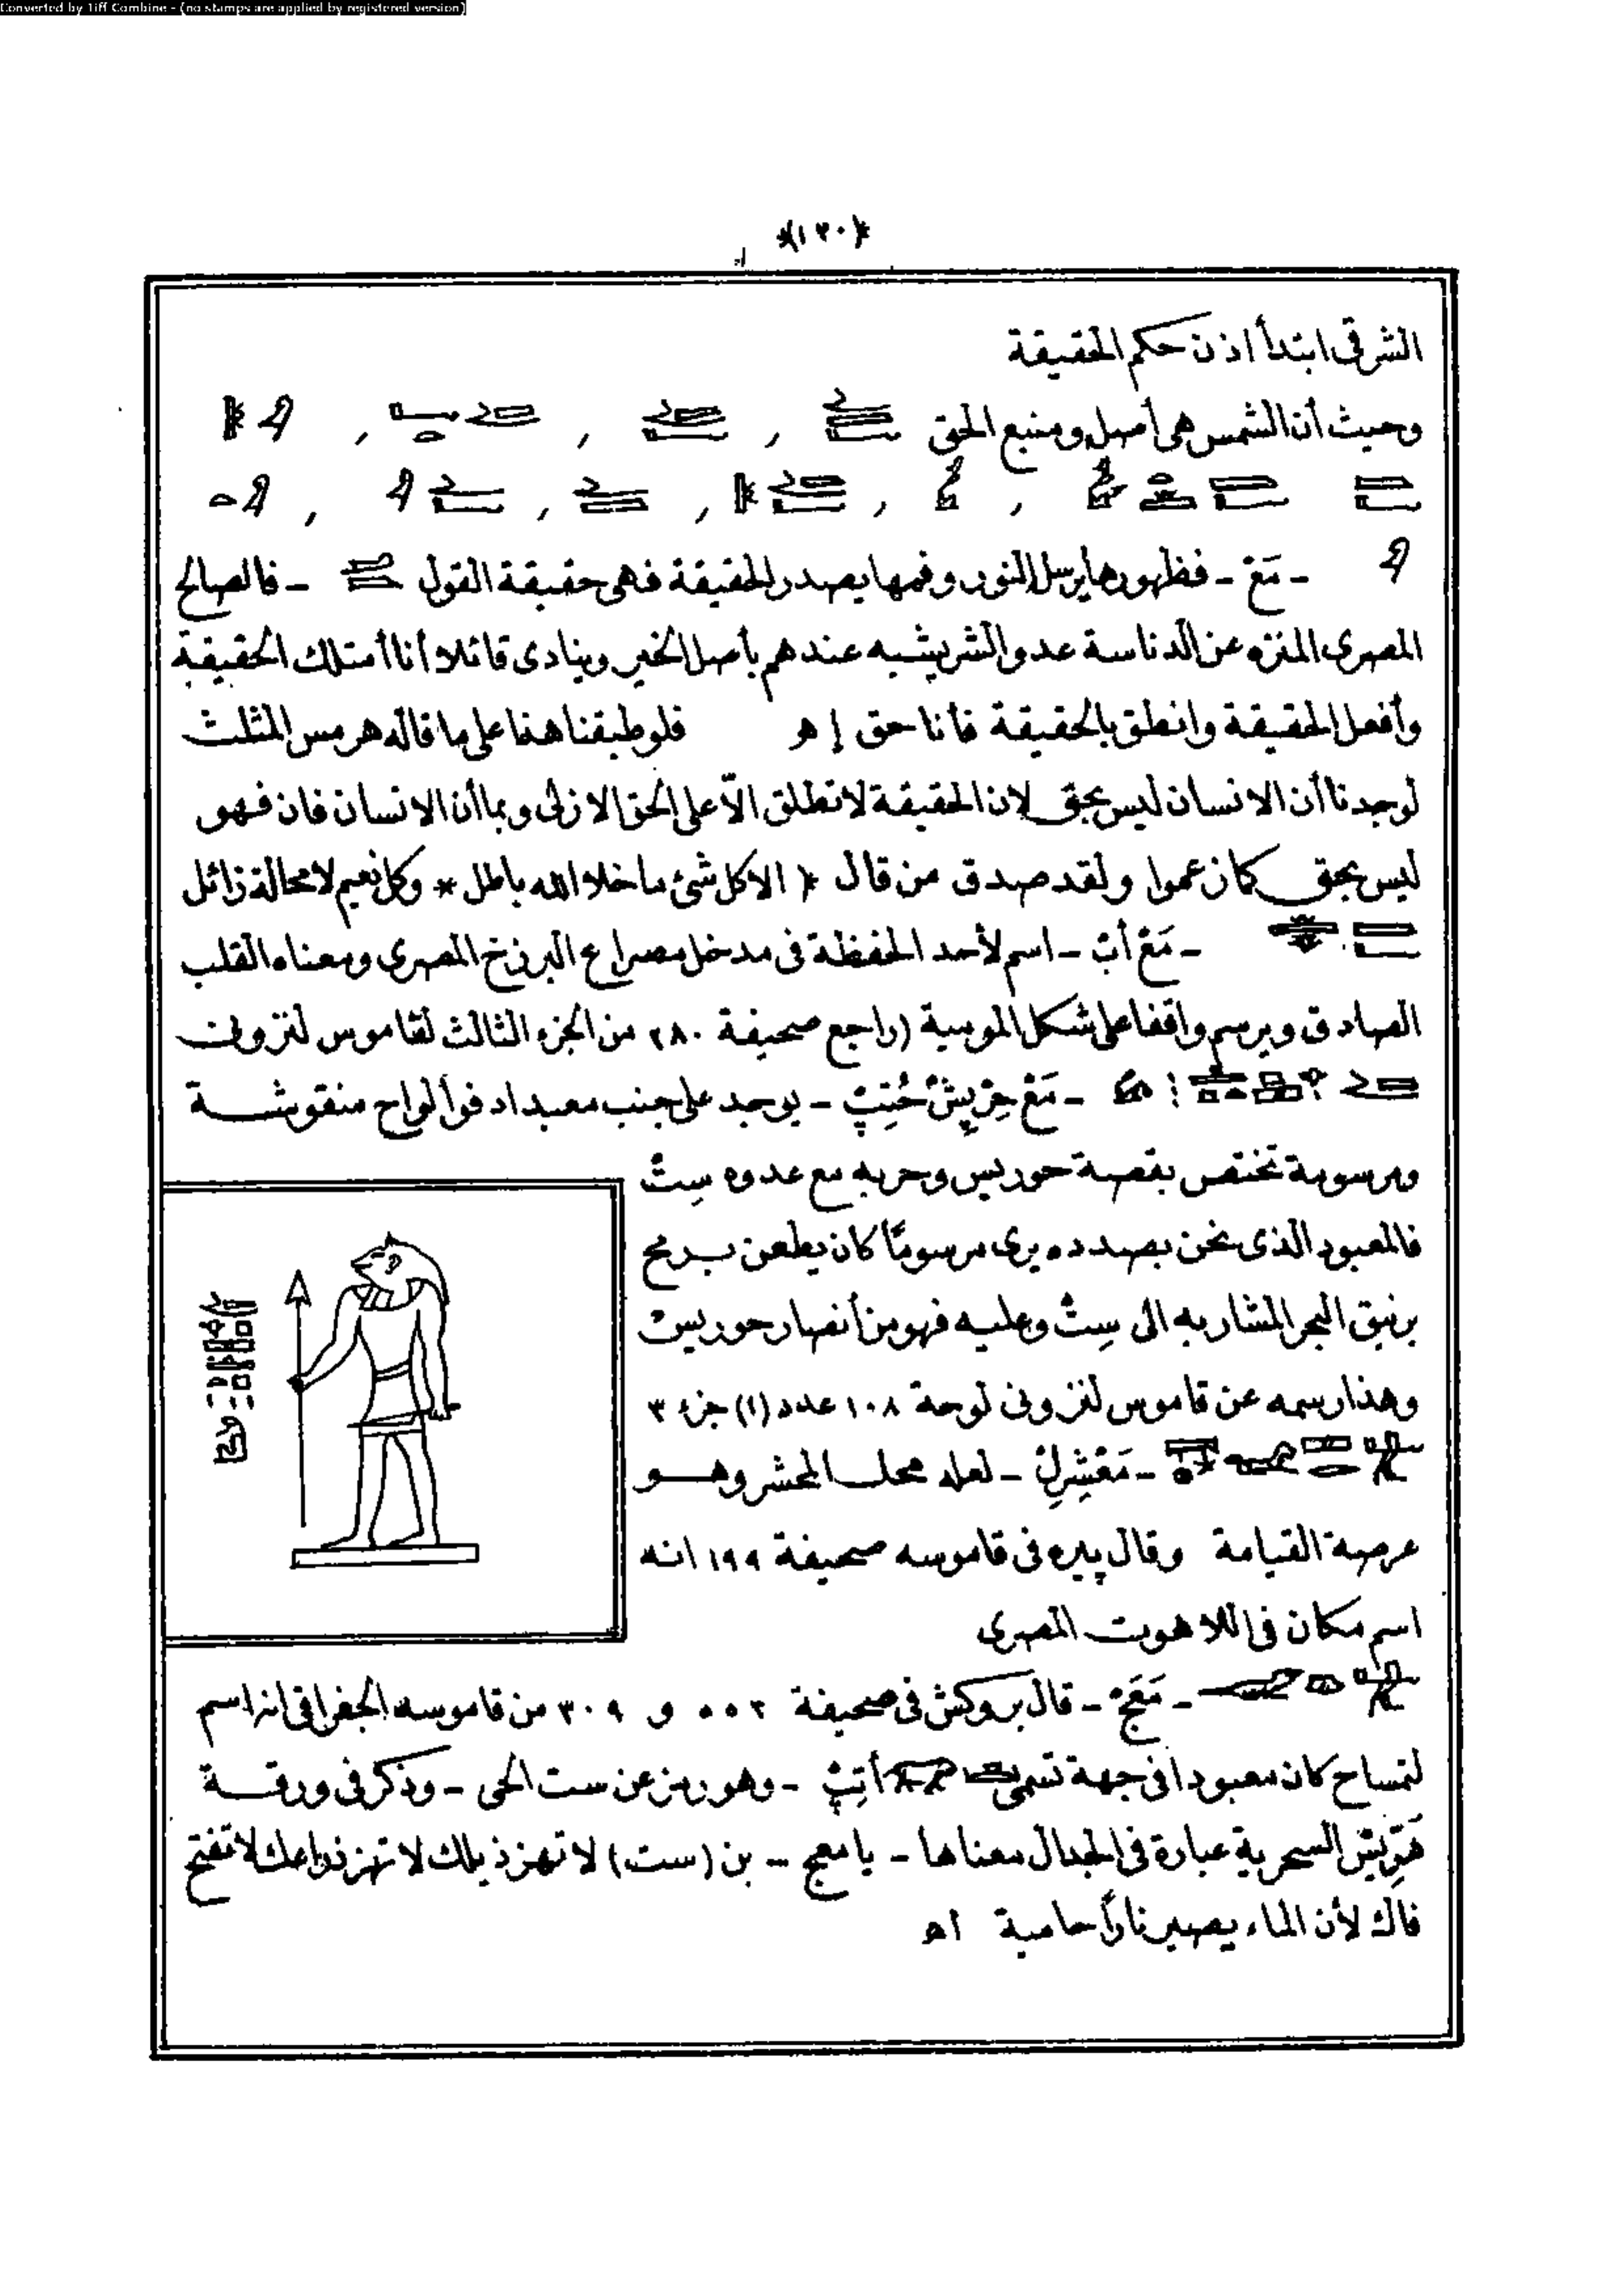 Converted by Tiff Combine - (no stamps are applied by registered version)
*(١٢٠)*
الشرقى ابتدأ اذن حكم الحقيقة
وحيث أن الشمس هى أصل ومنبع الحق
- مَعْ - فظهورها يرسل النور وفمها يصدر الحقيقة فهى حقيقة القول - فالصالح
المصرى المنزه عن الدناسة عدو الشر يشبه عندهم بأصل الخير وينادى قائلا أنا أمتلك الحقيقة
وأفعل الحقيقة وانطق بالحقيقة فأنا حق إ هـ فلو طبقنا هذا على ما قاله هرمس المثلث
لوجدنا أن الانسان ليس بحق لان الحقيقة لا تطلق الّا على الحق الازلى وبما أن الانسان فان فهو
ليس بحق كما زعموا ولقد صدق من قال * الا كل شئ ما خلا الله باطل * وكل نعيم لا محالة زائل
- مَعْ أبْ - اسم لأحد الحفظة فى مدخل مصراع البرزخ المصرى ومعناه القلب
الصادق ويرسم واقفا على شكل المومية (راجع صحيفة ٢٨٠ من الجزء الثالث لقاموس لنزونى
- مَعْ حِرْپِشْ حُتِپْ - يوجد على جنب معبد ادفو ألواح منقوشة
ومرسومة تختص بقصة حوريس وحربه مع عدوه سِتْ
فالمعبود الذى نحن بصدده يرى مرسومًا كان يطعن برمح
برنيق البحر المشار به الى سِتْ وعليه فهو من أنصار حوريس
وهذا رسمه عن قاموس لنزونى لوحة ١٠٨ عدد (١) جزء ٣
- مَعْشِرِلْ - لعله محل المحشر وهو
عرصة القيامة وقال پيره فى قاموسه صحيفة ١٩٩ انه
اسم مكان فى اللاهوت المصرى
- مَعَجْ - قال بروكش فى صحيفة ٥٥٢ و ٣٠٩ من قاموسه الجغرافى انه اسم
لتمساح كان معبودا فى جهة تسمى أتِپْ - وهو رمز عن ست الحى - وذكر فى ورقة
هَرِيس السحرية عبارة فى الجدال معناها - يا معج - بن (ست) لا تهز ذيلك لا تهز ذراعك لا تفتح
فاك لأن الماء يصير نارًا حامية اهـ